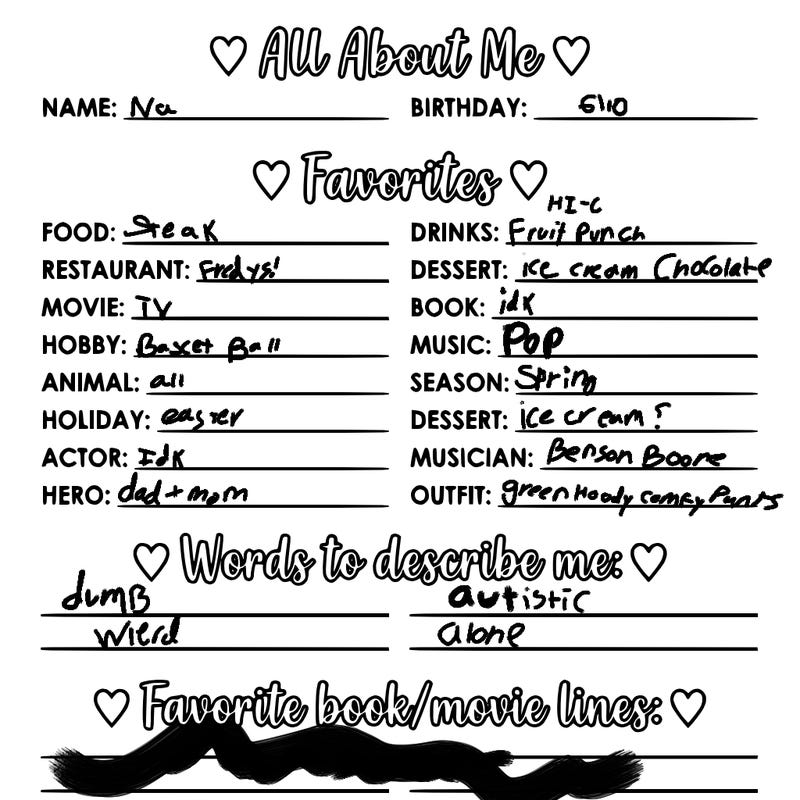 All About Me
NAME: Na BIRTHDAY: 6/10
Favorites
HI-C
FOOD: Steak DRINKS: Fruit Punch
RESTAURANT: Fredys! DESSERT: ice cream Chocolate
MOVIE: TV BOOK: idk
HOBBY: Basket Ball MUSIC: POP
ANIMAL: all SEASON: Spring
HOLIDAY: easter DESSERT: ice cream?
ACTOR: Idk MUSICIAN: Benson Boone
HERO: dad + mom OUTFIT: green Hoody comfy Pants
Words to describe me:
dumB autistic
wierd alone
Favorite book/movie lines: